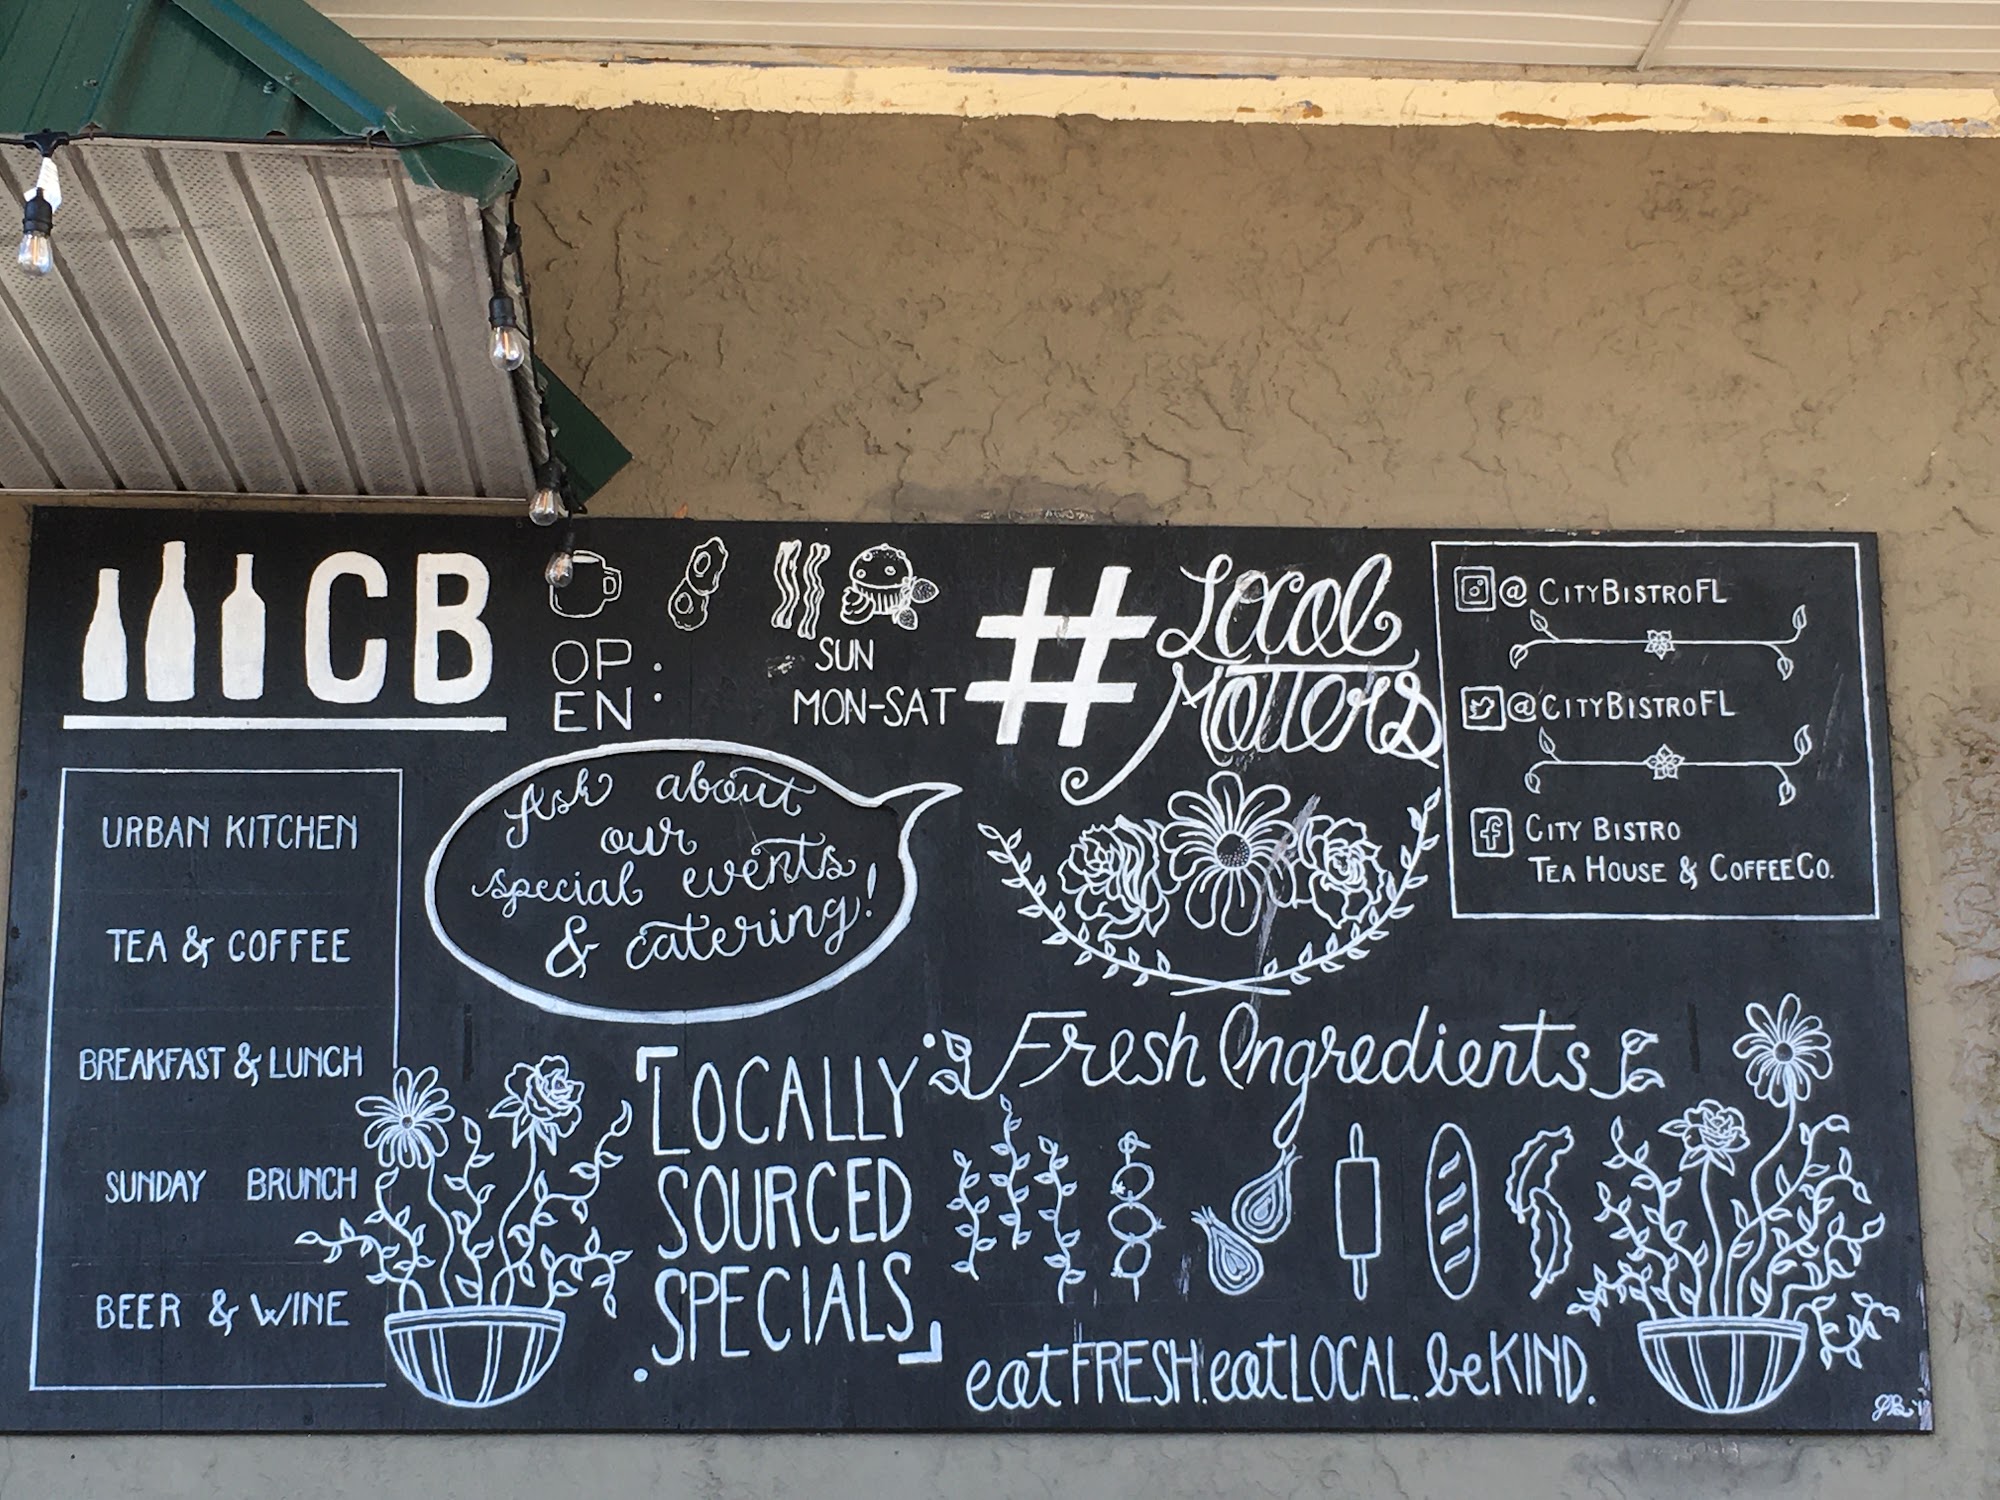 CB
OP
EN:
SUN
MON-SAT
#Local
Matters
@CITYBISTROFL
@CITYBISTROFL
f CITY BISTRO
TEA HOUSE & COFFEE CO.
URBAN KITCHEN
TEA & COFFEE
BREAKFAST & LUNCH
SUNDAY BRUNCH
BEER & WINE
Ask about
our
special events
& catering!
LOCALLY
SOURCED
SPECIALS
Fresh Ingredients
eat FRESH. eat LOCAL. be KIND.